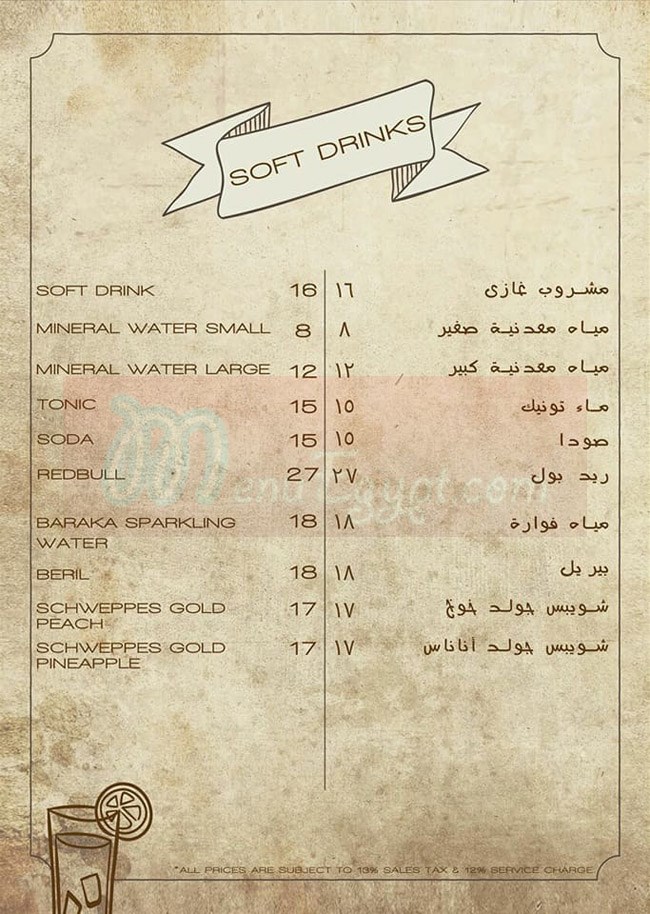 SOFT DRINKS
SOFT DRINK 16 ١٦ مشروب غازى
MINERAL WATER SMALL 8 ٨ مياه معدنية صغير
MINERAL WATER LARGE 12 ١٢ مياه معدنية كبير
TONIC 15 ١٥ ماء تونيك
SODA 15 ١٥ صودا
REDBULL 27 ٢٧ ريد بول
MenuEgypt.com
BARAKA SPARKLING 18 ١٨ مياه فوارة
WATER
BERIL 18 ١٨ بيريل
SCHWEPPES GOLD 17 ١٧ شويبس جولد خوخ
PEACH
SCHWEPPES GOLD 17 ١٧ شويبس جولد أناناس
PINEAPPLE
*ALL PRICES ARE SUBJECT TO 13% SALES TAX & 12% SERVICE CHARGE